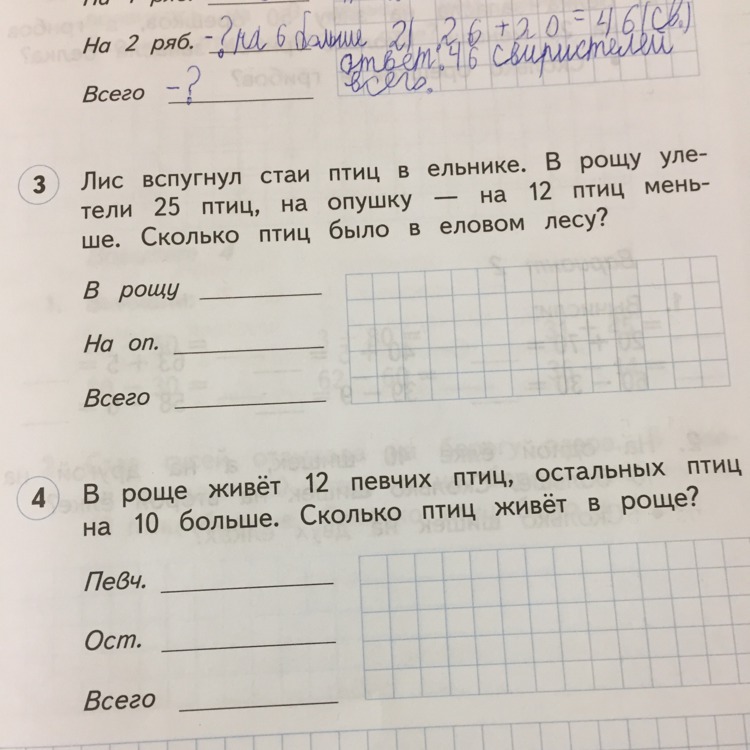 На 2 ряб. – ? на 6 больше 2) 26 + 20 = 46 (св.)
ответ: 46 свиристелей
Всего – ? всего.
3 Лис вспугнул стаи птиц в ельнике. В рощу уле-
тели 25 птиц, на опушку — на 12 птиц мень-
ше. Сколько птиц было в еловом лесу?
В рощу
На оп.
Всего
4 В роще живёт 12 певчих птиц, остальных птиц
на 10 больше. Сколько птиц живёт в роще?
Певч.
Ост.
Всего